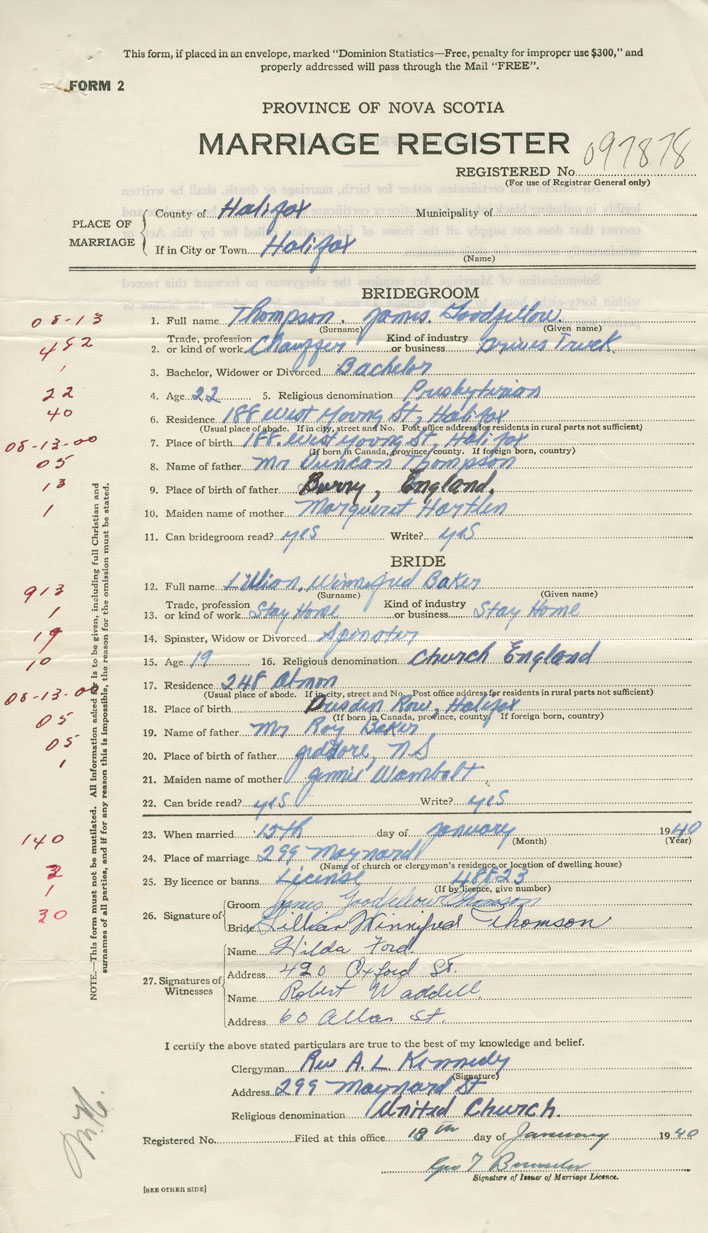 This form, if placed in an envelope, marked "Dominion Statistics—Free, penalty for improper use $300," and
properly addressed will pass through the Mail "FREE".
FORM 2
PROVINCE OF NOVA SCOTIA
MARRIAGE REGISTER
REGISTERED No. 097878
(For use of Registrar General only)
PLACE OF MARRIAGE
County of Halifax Municipality of
If in City or Town Halifax
(Name)
BRIDEGROOM
08-13
1. Full name Thompson, James Goodfellow.
(Surname) (Given name)
452
2. Trade, profession or kind of work Chauffer Kind of industry or business Drives Truck
1
3. Bachelor, Widower or Divorced Bachelor
22
4. Age 22 5. Religious denomination Presbyterian
40
6. Residence 188 West Young St, Halifax
(Usual place of abode. If in city, street and No. Post office address for residents in rural parts not sufficient)
08-13-00
7. Place of birth 188 West Young St, Halifax
(If born in Canada, province, county. If foreign born, country)
05
8. Name of father Mr Duncan Thompson
13
9. Place of birth of father Burry, England.
1
10. Maiden name of mother Marguerit Hartlen
11. Can bridegroom read? yes Write? yes
BRIDE
913
12. Full name Lillian, Winnifred Baker
(Surname) (Given name)
1
13. Trade, profession or kind of work Stay Home Kind of industry or business Stay Home
19
14. Spinster, Widow or Divorced Spinster
10
15. Age 19 16. Religious denomination Church England
08-13-00
17. Residence 248 Almon
(Usual place of abode. If in city, street and No. Post office address for residents in rural parts not sufficient)
05
18. Place of birth Dresden Row, Halifax
(If born in Canada, province, county. If foreign born, country)
05
19. Name of father Mr Roy Baker
1
20. Place of birth of father Jeddore, N.S
21. Maiden name of mother Jennie Wambolt
22. Can bride read? yes Write? yes
140
23. When married 15th day of January 1940
(Month) (Year)
24. Place of marriage 299 Maynard
(Name of church or clergyman's residence or location of dwelling house)
1
25. By licence or banns License 48823
(If by licence, give number)
30
26. Signature of
Groom James Goodfellow Thomson
Bride Lillian Winnifred Thomson
27. Signatures of Witnesses
Name Hilda Ford
Address 420 Oxford St.
Name Robert Waddell.
Address 60 Allan St.
NOTE.—This form must not be mutilated. All information asked for is to be given, including full Christian and
surnames of all parties, and if for any reason this is impossible, the reason for the omission must be stated.
I certify the above stated particulars are true to the best of my knowledge and belief.
Clergyman Rev A. L Kennedy
(Signature)
Address 299 Maynard St
Religious denomination United Church.
Registered No. Filed at this office 18th day of January 1940
Geo T
Signature of Issuer of Marriage Licence.
[SEE OTHER SIDE]